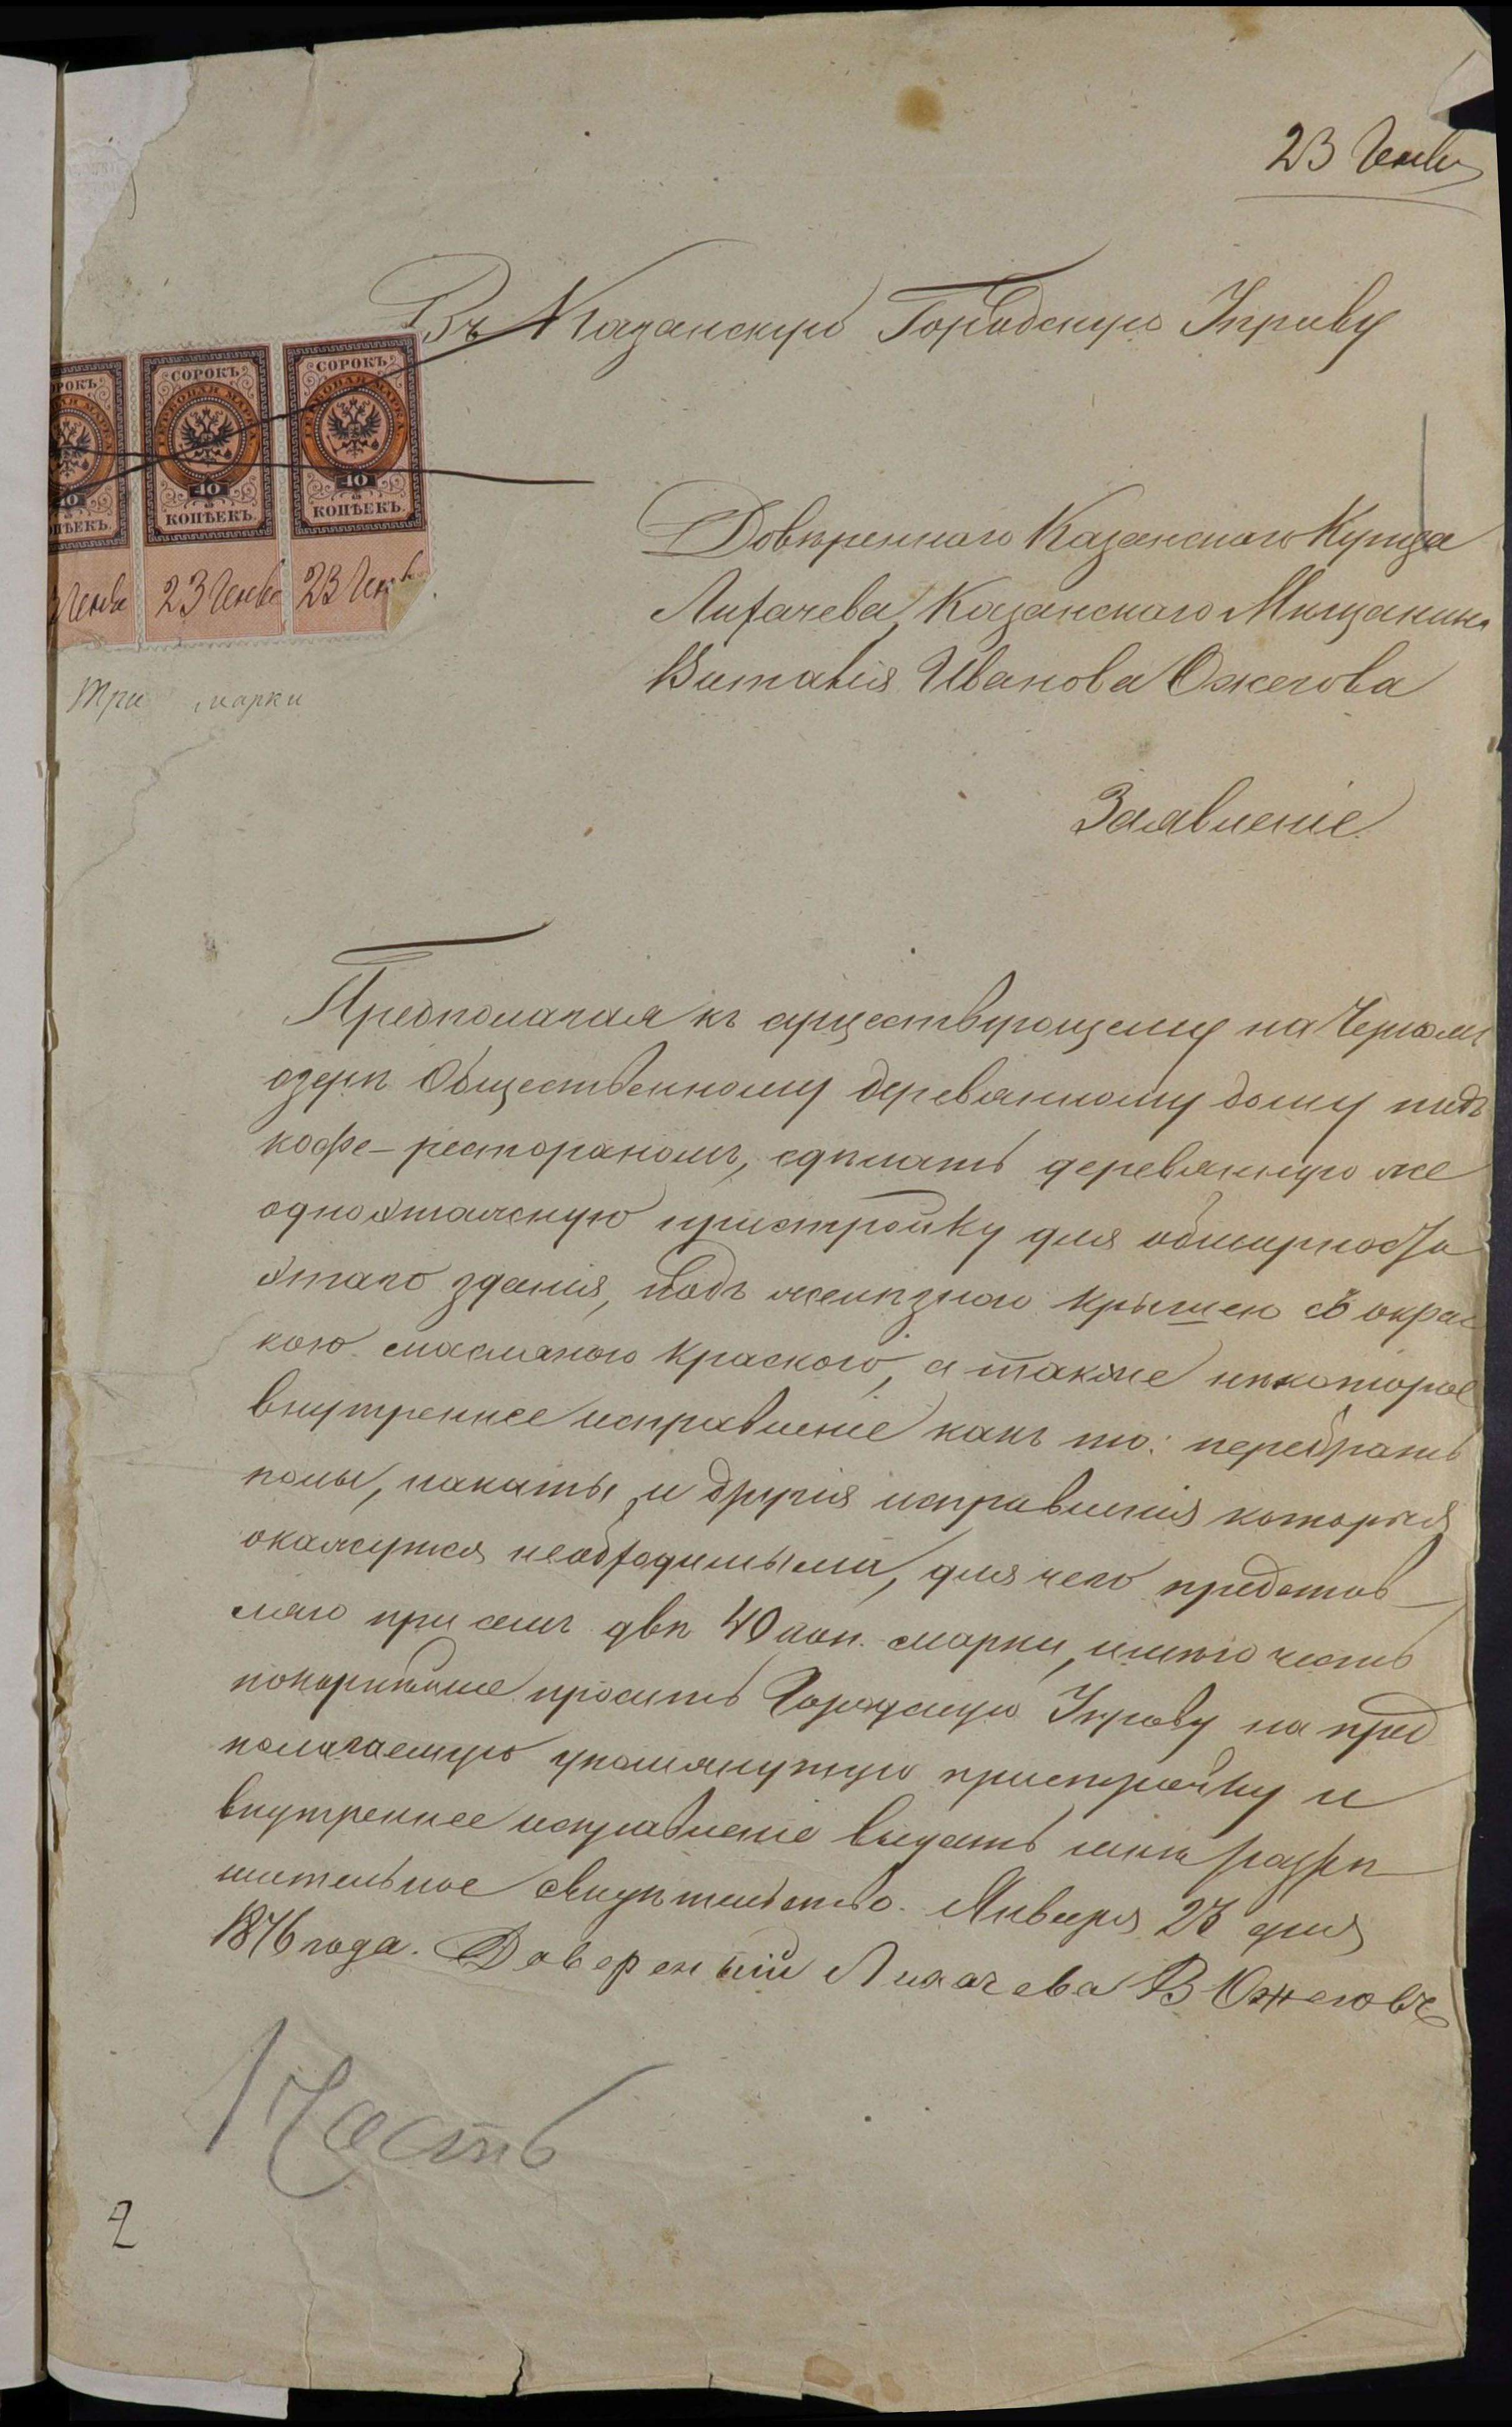 23 Генв
Въ Казанскую Городскую Управу
СОРОКЪ
СОРОКЪ
СОРОКЪ
ГЕРБОВАЯ МАРКА
ГЕРБОВАЯ МАРКА
40
40
40
КОПѢЕКЪ.
КОПѢЕКЪ.
КОПѢЕКЪ.
Генв 23 Генв 23 Генв
Три марки
Довѣренного Казанского Купца
Лихачева, Казанского Мѣщанина
Виталія Иванова Ожегова
Заявленіе.
Предполагая къ существующему на Черномъ
озерѣ Общественному деревянному дому подъ
кофе-рестораномъ, сдѣлать деревянную же
одноэтажную пристройку для обширности
этаго зданія, подъ желѣзною крышею съ окрас
кою масляною краскою, а также нѣкоторое
внутреннее исправленіе какъ то: перебрать
полы, накаты, и другія исправленія которыя
окажутся необходимыми, для чего представ-
ляю при семъ двѣ 40 коп. марки, имѣю честь
покорнѣйше просить Городскую Управу на пред
полагаемую упомянутую пристройку и
внутреннее исправленіе выдать мнѣ разрѣ
шительное свидѣтельство. Января 23 дня
1876 года. Довереный Лихачева В Ожеговъ
1 Часть
2